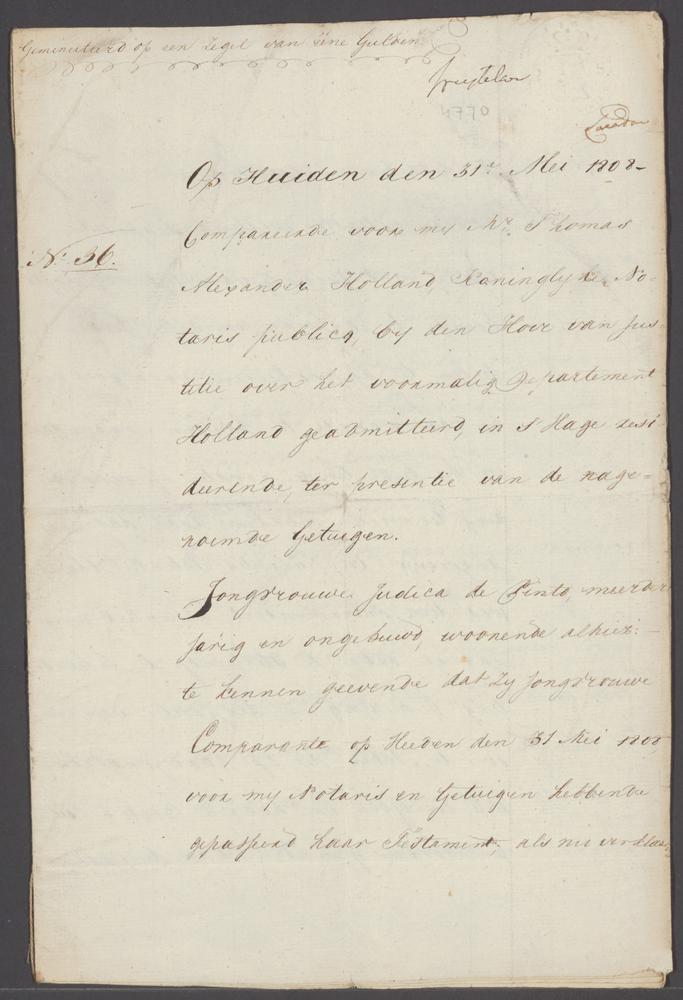 Geminuteerd op een Zegel van eene Gulden
4770
Op Huiden den 31e Mei 1808
Compareerde voor my Mr. Thomas
No. 36.
Alexander Holland, Koninglyke No-
taris publicq, by den Hove van Jus-
titie over het voormalig Departement
Holland geadmitteerd, in s'Hage resi-
deerende, ter presentie van de nage-
noemde Getuigen.
Jongvrouwe Judica de Pinto, meerder
jarig en ongehuwd, woonende alhier:
te kennen geevende dat Zy Jongvrouwe
Comparante op Heeden den 31 Mei 1808
voor my Notaris en Getuigen hebbende
gepasseerd haar Testament, als nu verklaar